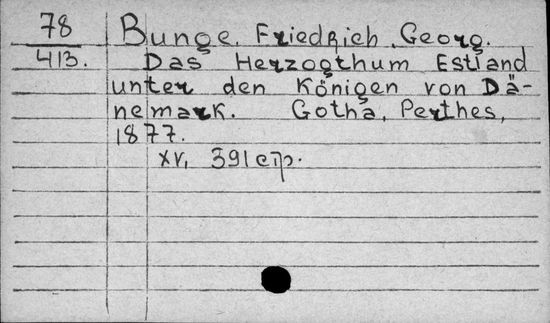 78
413.
Bunge, Friedrich, Georg.
Das Herzogthum Estland
unter den Königen von Dä-
nemark. Gotha, Perthes,
1877.
XV, 391 стр.